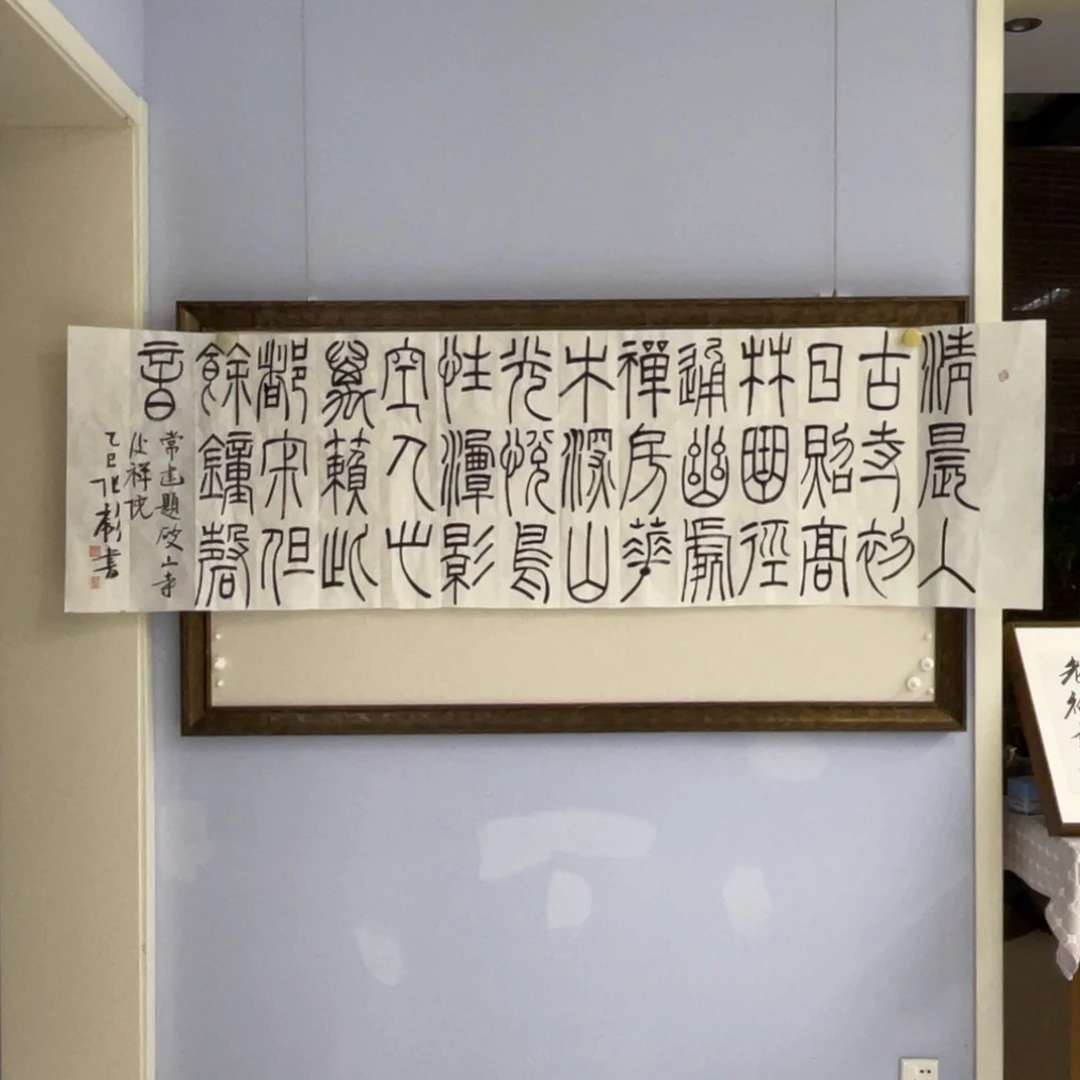 清晨入
古寺初
日照高
林曲徑
通幽處
禪房華
木深山
光悅鳥
性潭影
空人心
萬籟此
都寂但
餘鐘磬
音
常建題破山寺
後禪院
乙巳 書